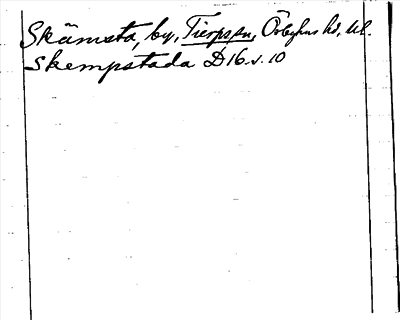 Skämsta, by, Tierps sn, Örbyhus hd, Upl.
Skempstada D16 s. 10